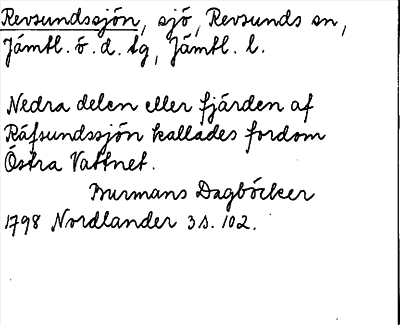 Revsundssjön, sjö, Revsunds sn,
Jämtl. ö. d. tg, Jämtl. l.
Nedra delen eller fjärden af
Räfsundssjön kallades fordom
Östra Vattnet.
Burmans Dagböcker
1798 Nordlander 3 s. 102.